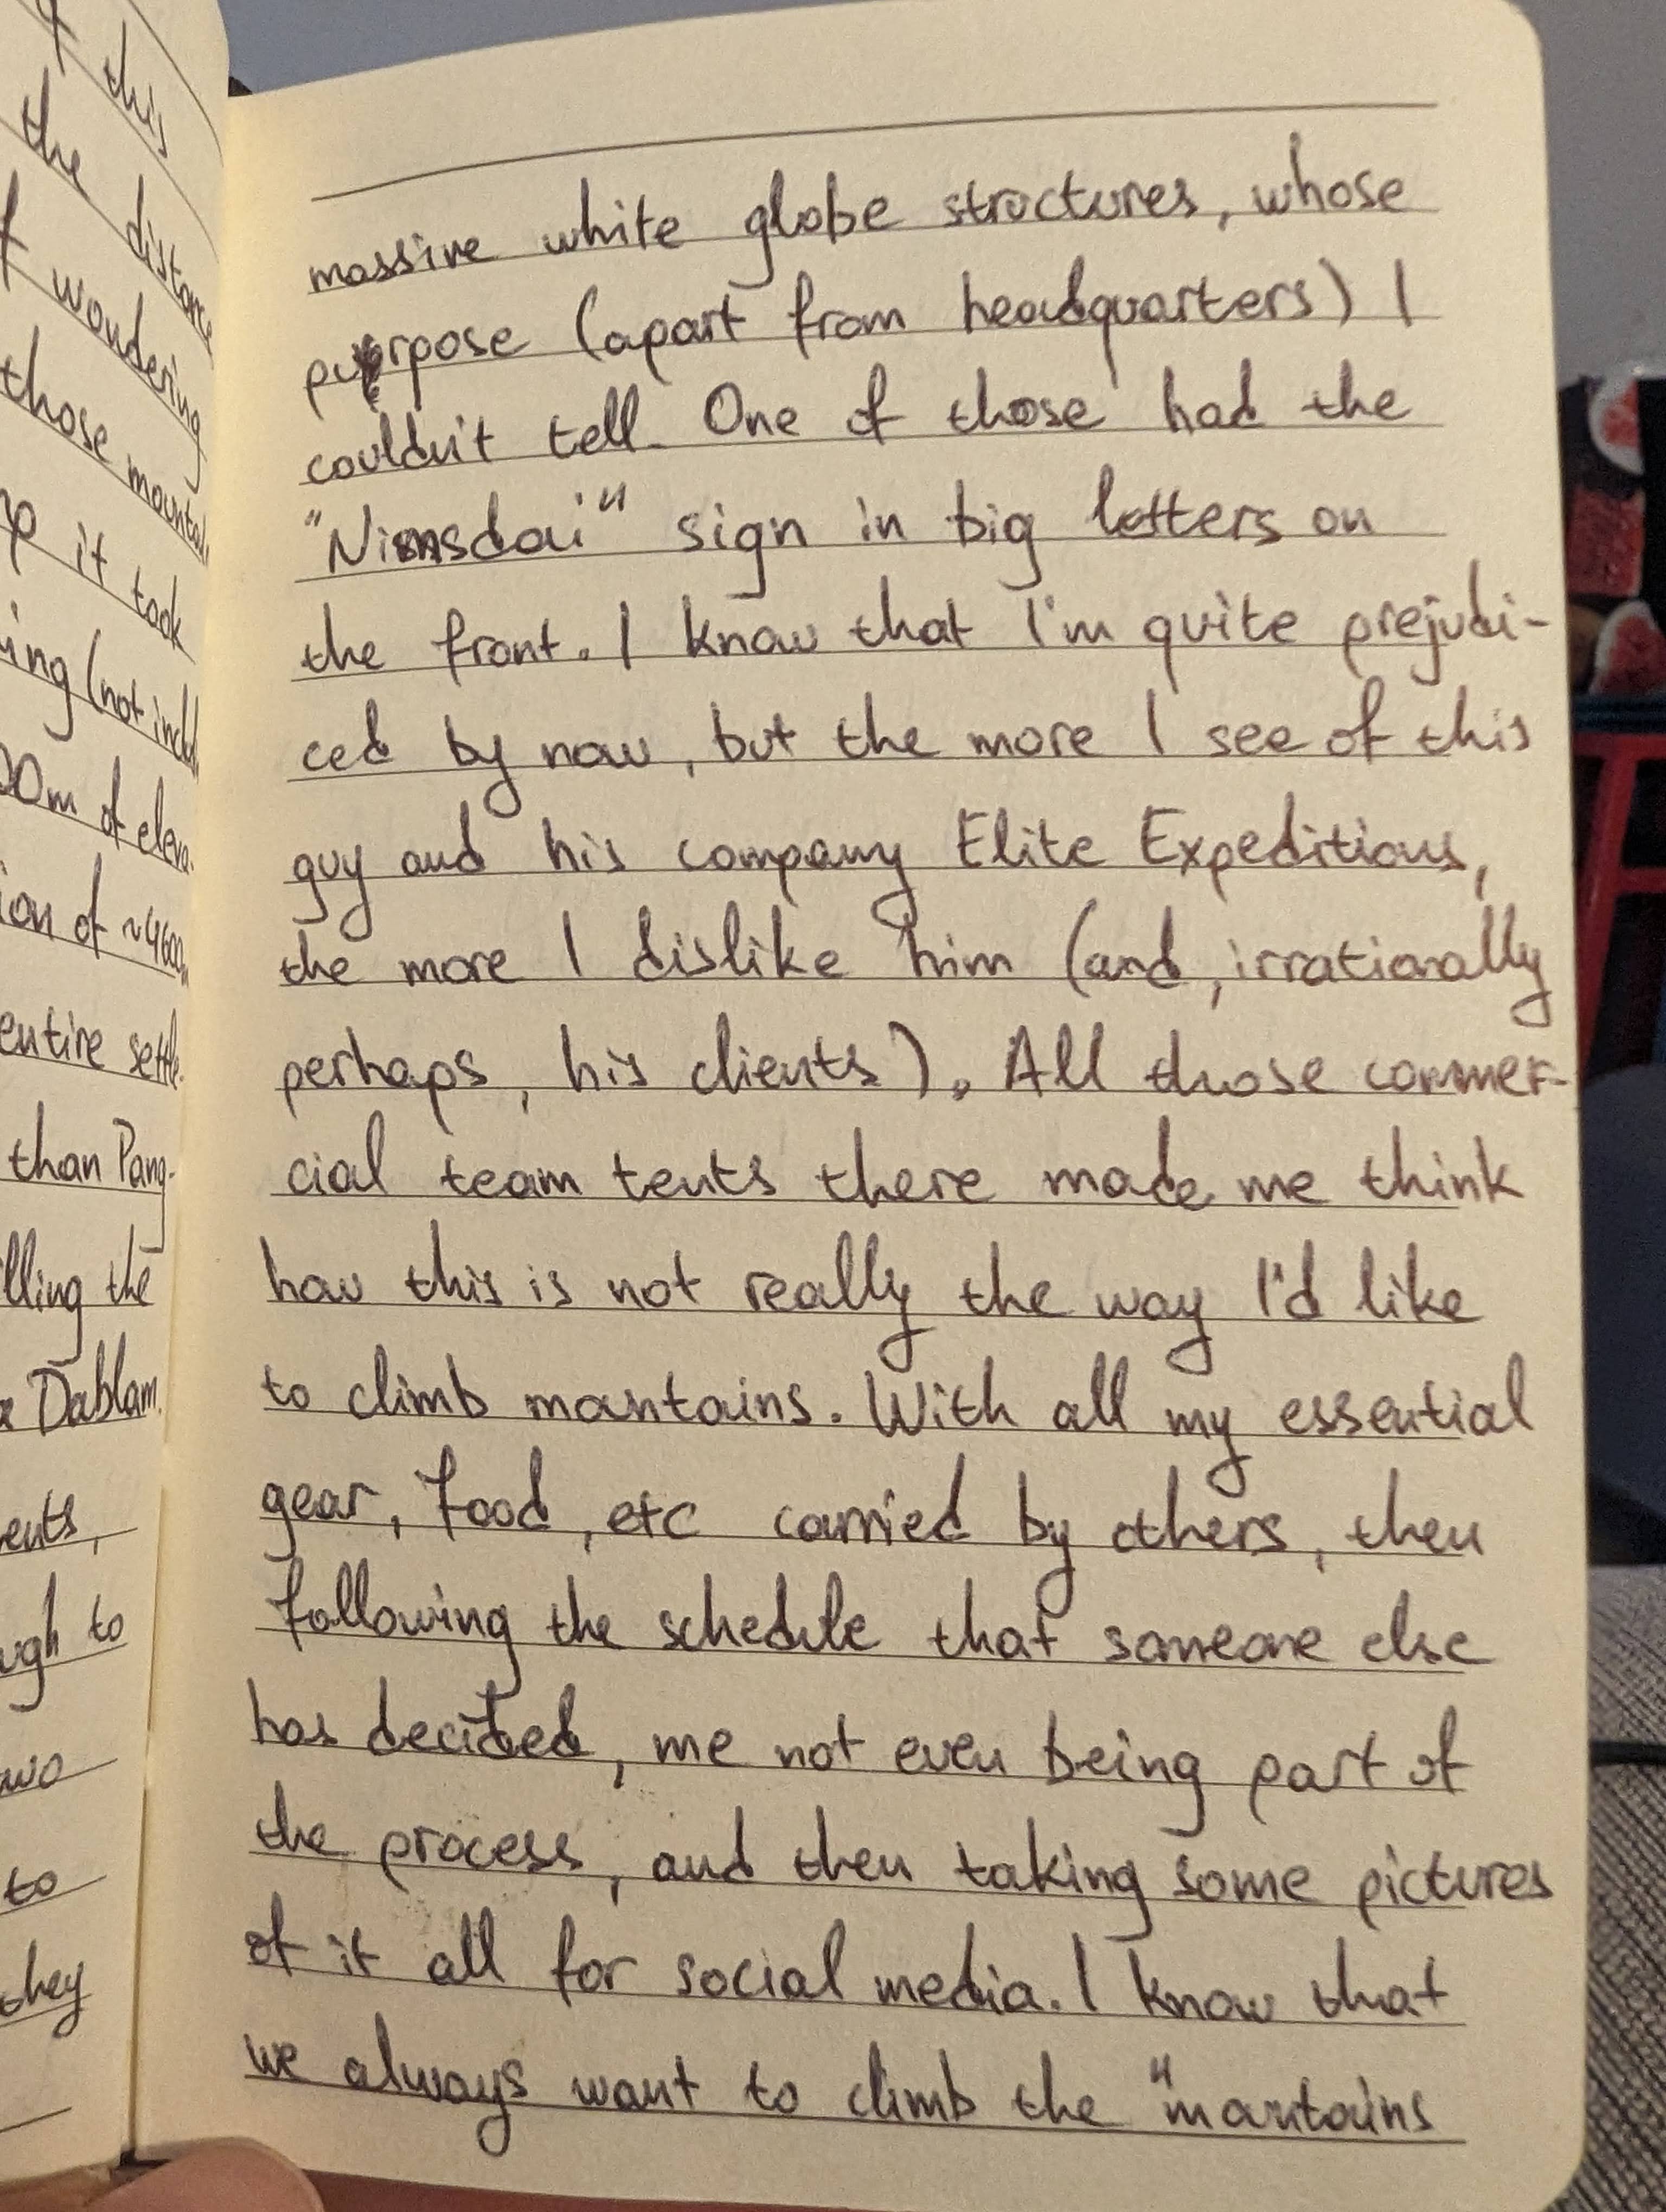 this
the distance
wondering
those mountai
it took
ing (not incl
00m of eleva
ion of ~4600m
entire settle
than Pang-
lling the
Dablam.
ents,
ugh to
wo
to
they
massive white globe structures, whose
purpose (apart from headquarters) I
couldn't tell. One of those had the
"Nimsdai" sign in big letters on
the front. I know that I'm quite prejudi-
ced by now, but the more I see of this
guy and his company Elite Expeditions,
the more I dislike him (and, irrationally
perhaps, his clients). All those commer-
cial team tents there made me think
how this is not really the way I'd like
to climb mountains. With all my essential
gear, food, etc carried by others, then
following the schedule that someone else
has decided, me not even being part of
the process, and then taking some pictures
of it all for social media. I know that
we always want to climb the "mountains